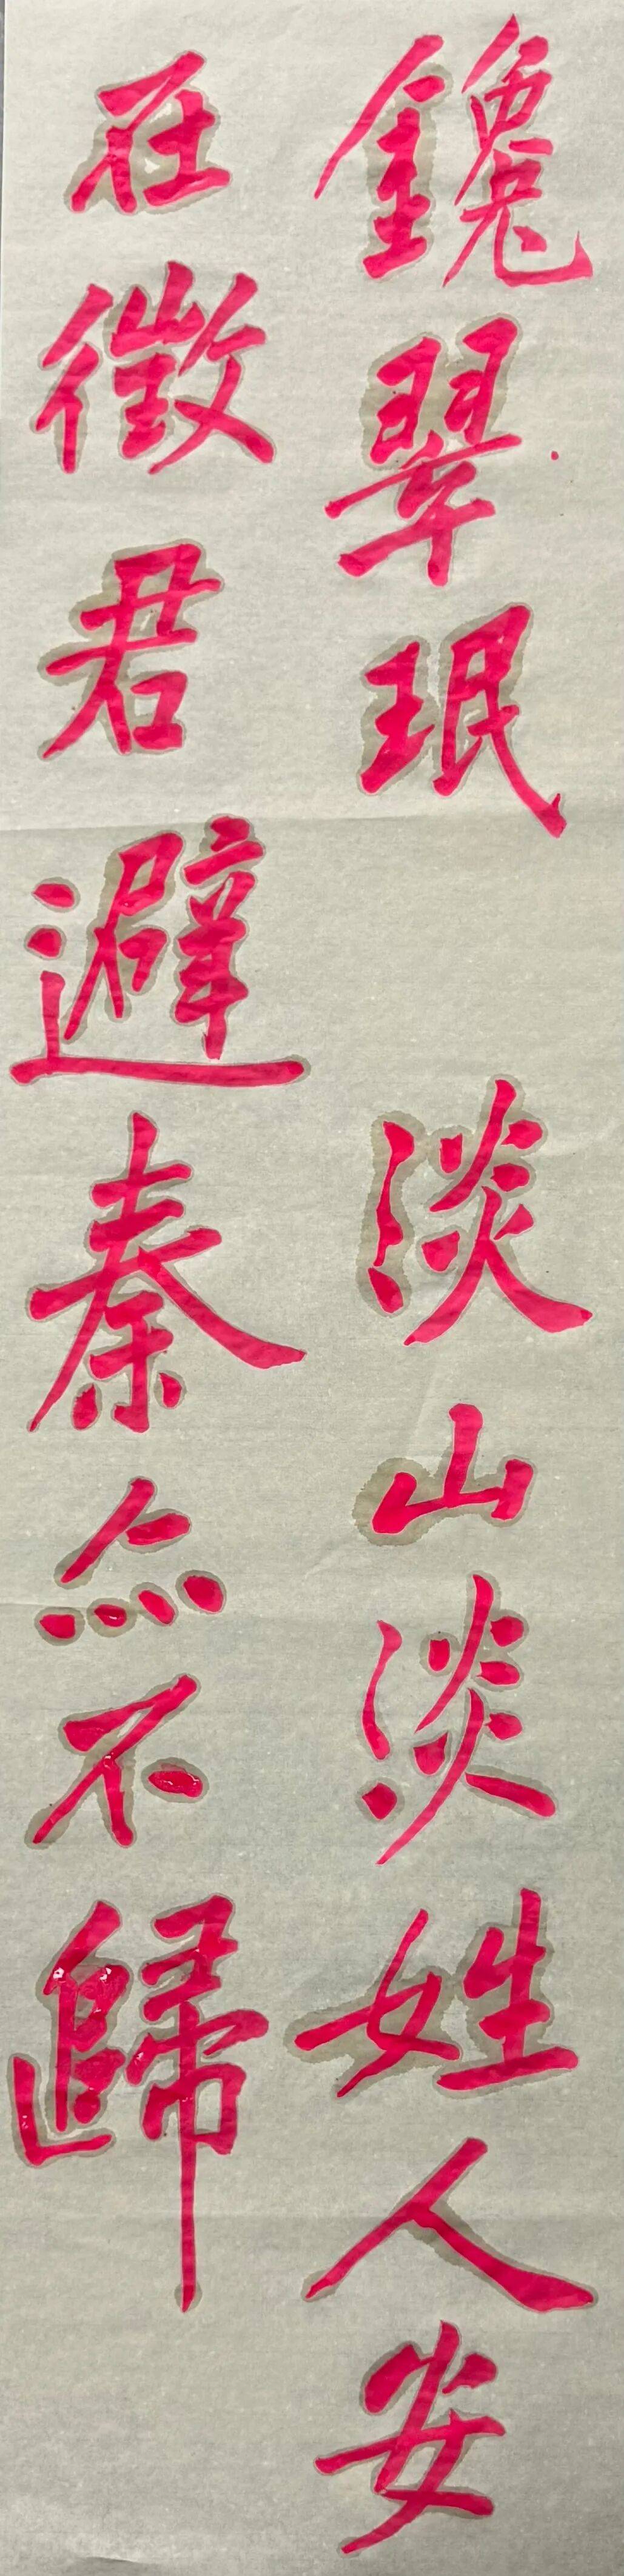 鑱翠珉 淡山淡姓人安
在徵君避秦亦不歸